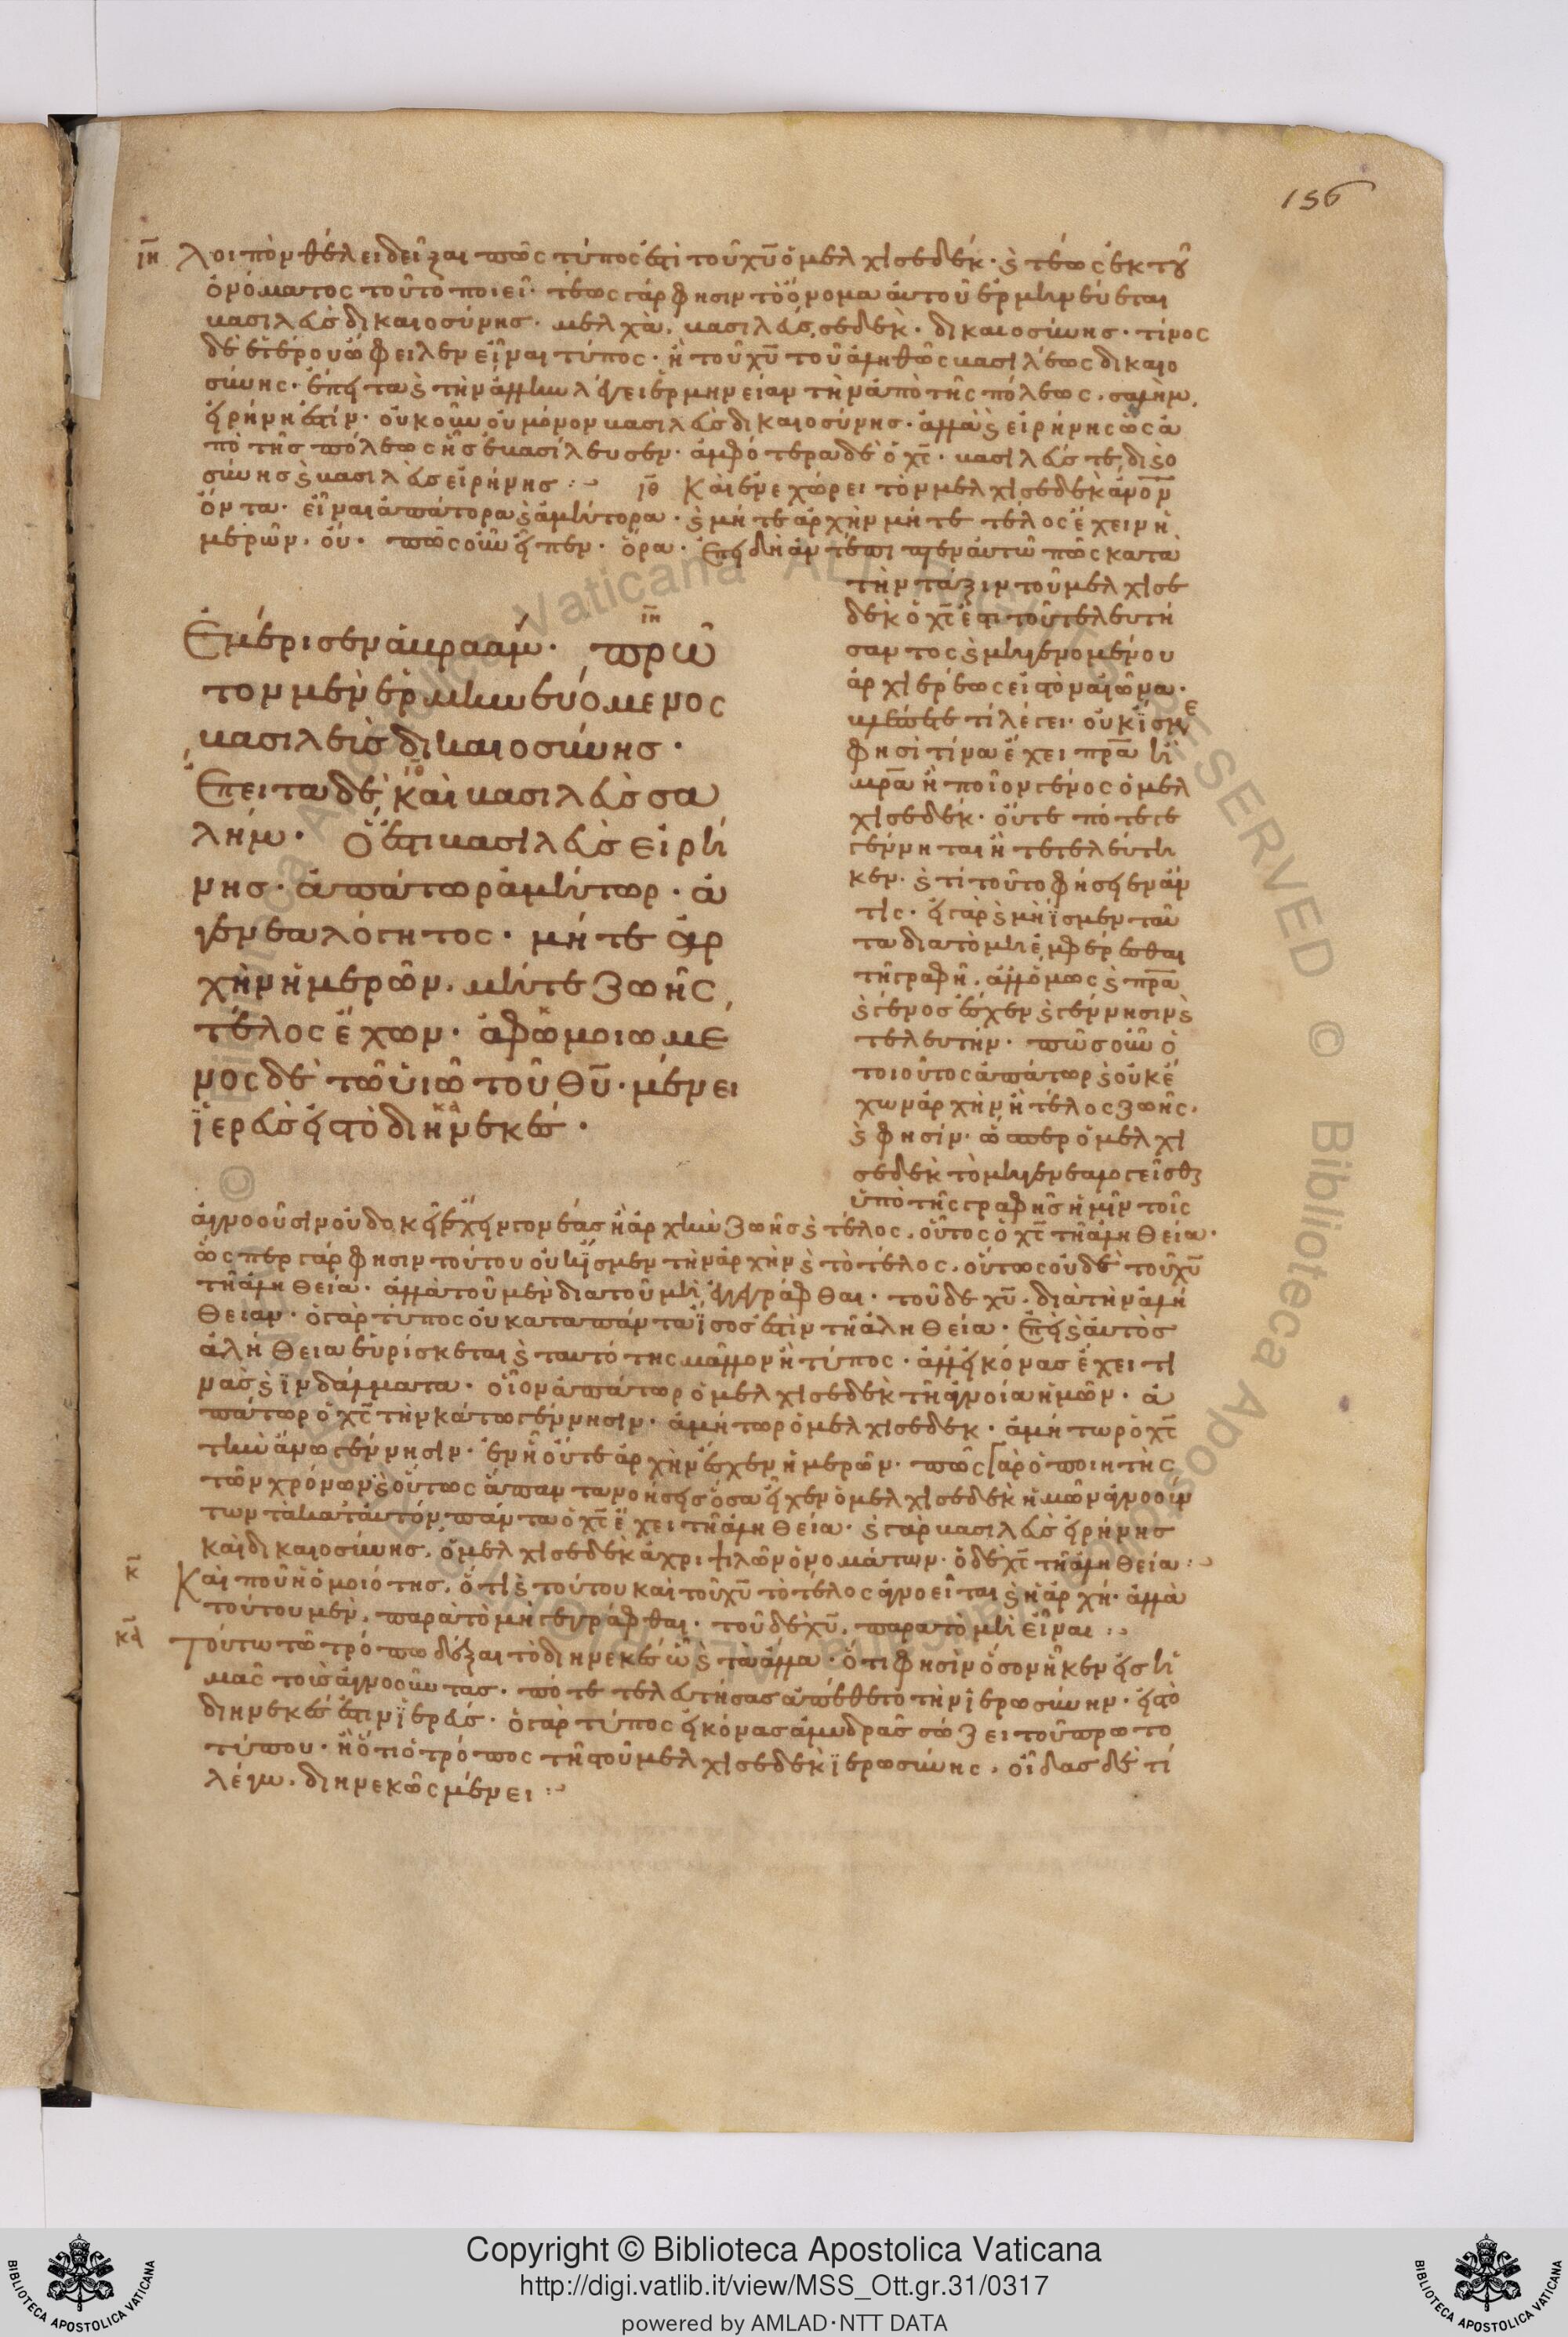 156
ιη Λοιπὸν θέλει δεῖξαι πῶς τύπος ἐστὶ τοῦ χυ ὁ μελχισεδέκ· ϗ τέως ἐκ τοῦ
ὀνόματος τοῦτο ποιεῖ· τέως γάρ φησιν τὸ ὄνομα αὐτοῦ ἑρμηνεύεται
βασιλεὺς δικαιοσύνης· μελχὰ, βασιλεὺς, σεδὲκ· δικαιοσύνης· τίνος
δὲ ἑτέρου ὤφειλεν εἶναι τύπος· ἢ τοῦ χυ τοῦ ἀληθῶς βασιλέως δικαιο
σύνης· ἔπειτα ϗ τὴν ἄλλην λέγει ἑρμηνείαν τὴν ἀπὸ τῆς πόλεως· σαλὴμ,
εἰρήνη ἐστίν· οὐκοῦν οὐ μόνον βασιλεὺς δικαιοσύνης· ἀλλὰ ϗ εἰρήνης ὡς ἀ
πὸ τῆς πόλεως ἧς ἐβασίλευσεν· ἀμφότερα δὲ ὁ χς· βασιλεύς τε, δικαιο
σύνης ϗ βασιλεὺς εἰρήνης :~ ιθ Καὶ ἐνεχώρει τὸν μελχισεδὲκ ανον
ὄντα· εἶναι ἀπάτορα ϗ ἀμήτορα· ϗ μήτε ἀρχὴν μήτε τέλος ἔχειν ἡ
μερῶν· οὔ· πῶς οὖν εἶπεν· ὅρα· Ἐπειδὴ ἀντέπιπτεν αὐτῶ πῶς κατὰ
τὴν τάξιν τοῦ μελχισε
δὲκ ὁ χς ἐστι τοῦ τελευτή
σαντος ϗ μὴ γενομένου
ἀρχιερέως εἰς τὸν αἰῶνα·
βλέπετε τί λέγει· οὐκ ἴσμεν
φησὶ τίνα ἔχει πρα ἢ
μρα ἢ ποῖον γένος ὁ μελ
χισεδέκ· οὔτε πότε γε
γέννηται ἢ τετελεύτη
κεν· ϗ τί τοῦτο φήσειεν ἄν
τις· εἰ γὰρ ϗ μὴ ἴσμεν ταῦ
τα διὰ τὸ μὴ ἐμφέρεσθαι
τῆ γραφῆ· ἀλλ' ὅμως ϗ πρα
ϗ γένος ἔσχεν ϗ γέννησιν ϗ
τελευτήν· πῶς οὖν ὁ
τοιοῦτος ἀπάτωρ ϗ οὐκ ἔ
χων ἀρχὴν ἢ τέλος ζωῆς·
ϗ φησίν· ὥσπερ ὁ μελχι
σεδὲκ τὸ μὴ γενεαλογεῖσθαι
ὑπὸ τῆς γραφῆς ἡμῖν τοῖς
Ἐμέρισεν ἀβραάμ· πρῶ
τον μὲν ἑρμηνευόμενος
βασιλεὺς δικαιοσύνης·
Ἔπειτα δὲ καὶ βασιλεὺς σα
λήμ· Ὅ ἐστι βασιλεὺς εἰρή
νης· ἀπάτωρ ἀμήτωρ· ἀ
γενεαλόγητος· μήτε ἀρ
χὴν ἡμερῶν, μήτε ζωῆς
τέλος ἔχων· ἀφωμοιωμέ
νος δὲ τῶ υἱῶ τοῦ θυ· μένει
ἱερεὺς εἰς τὸ διηνεκές·
ἀγνοοῦσιν οὐδοκεῖ ἔχειν γονέας ἢ ἀρχὴν ζωῆς ϗ τέλος· οὗτος ὁ χς τῆ ἀληθεία·
ὥσπερ γάρ φησιν τούτου οὐκ ἴσμεν τὴν ἀρχὴν ϗ τὸ τέλος· οὕτως οὐδὲ τοῦ χυ
τῆ ἀληθεία· ἀλλὰ τοῦ μὲν διὰ τοῦ μὴ ἐγγράφθαι· τοῦ δὲ χυ· διὰ τὴν ἀλή
θειαν· ὁ γὰρ τύπος οὐ κατὰ πάντα ἴσος ἐστὶν τῆ ἀληθεία· Ἐπεὶ ϗ αὐτὸς
ἀλήθεια εὑρίσκεται ϗ ταυτότης μᾶλλον ἢ τύπος· ἀλλ' εἰκόνας ἔχει τι
νὰς ϗ ἰνδάλματα· οἷον ἀπάτωρ ὁ μελχισεδὲκ τῆ ἀγνοία ἡμῶν· ἀ
πάτωρ ὁ χς τὴν κάτω γέννησιν· ἀμήτωρ ὁ μελχισεδεκ· ἀμήτωρ ὁ χς
τὴν ἄνω γέννησιν· ἐν ἧ οὔτε ἀρχὴν ἔσχεν ἡμερῶν· πῶς γὰρ ὁ ποιητὴς
τῶν χρόνων· ϗ οὕτως ἅπαντα νοήσεις ὅσα εἶχεν ὁ μελχισεδὲκ ἡμῶν ἀγνοούν
των τὰ κατ' αὐτόν· πάντα ὁ χς ἔχει τῆ ἀληθεία· ϗ γὰρ βασιλεὺς εἰρήνης
καὶ δικαιοσύνης, ὁ μελχισεδὲκ ἄχρι ψιλῶν ὀνομάτων· ὁ δὲ χς τῆ ἀληθεία :~
κ Καὶ ποῦ ἡ ὁμοιότης, ὅτι ϗ τούτου καὶ τοῦ χυ τὸ τέλος ἀγνοεῖται ϗ ἡ ἀρχή· ἀλλὰ
τούτου μὲν, παρὰ τὸ μὴ γεγράφθαι· τοῦ δὲ χυ, παρὰ τὸ μὴ εἶναι :~
κα Τούτω τῶ τρόπω δέξαι τὸ διηνεκὲς ὧ ϗ τὰ ἄλλα· ὅτι φησὶν ὅσον ἧκεν εἰς ἡ
μᾶς τοὺς ἀγνοοῦντας· πότε τελευτήσας ἀπέθετο τὴν ἱερωσύνην· εἰς τὸ
διηνεκές ἐστιν ἱερεύς· ὁ γὰρ τύπος εἰκόνας ἀμυδρὰς σώζει τοῦ πρωτο
τύπου· ἢ ὅτι ὁ τρόπος τῆς τοῦ μελχισεδὲκ ἱερωσύνης, οἶδας δὲ τί
λέγω, διηνεκῶς μένει :~
Copyright © Biblioteca Apostolica Vaticana
http://digi.vatlib.it/view/MSS_Ott.gr.31/0317
powered by AMLAD·NTT DATA
BIBLIOTECA APOSTOLICA VATICANA
BIBLIOTECA APOSTOLICA VATICANA